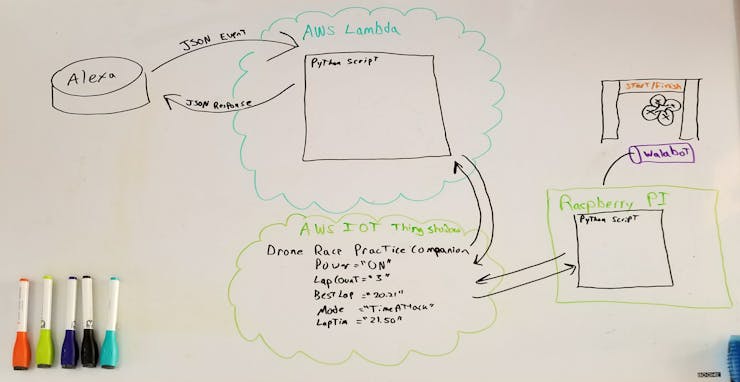 AWS Lambda
JSON Event
Alexa
Python Script
JSON Response
START/Finish
walabot
Raspberry PI
Python Script
AWS IOT Thing Shadow
Drone Race Practice Companion
Power="ON"
LapCount="3"
Best Lap ="20.21"
Mode ="TimeAttack"
LapTim ="21.50"